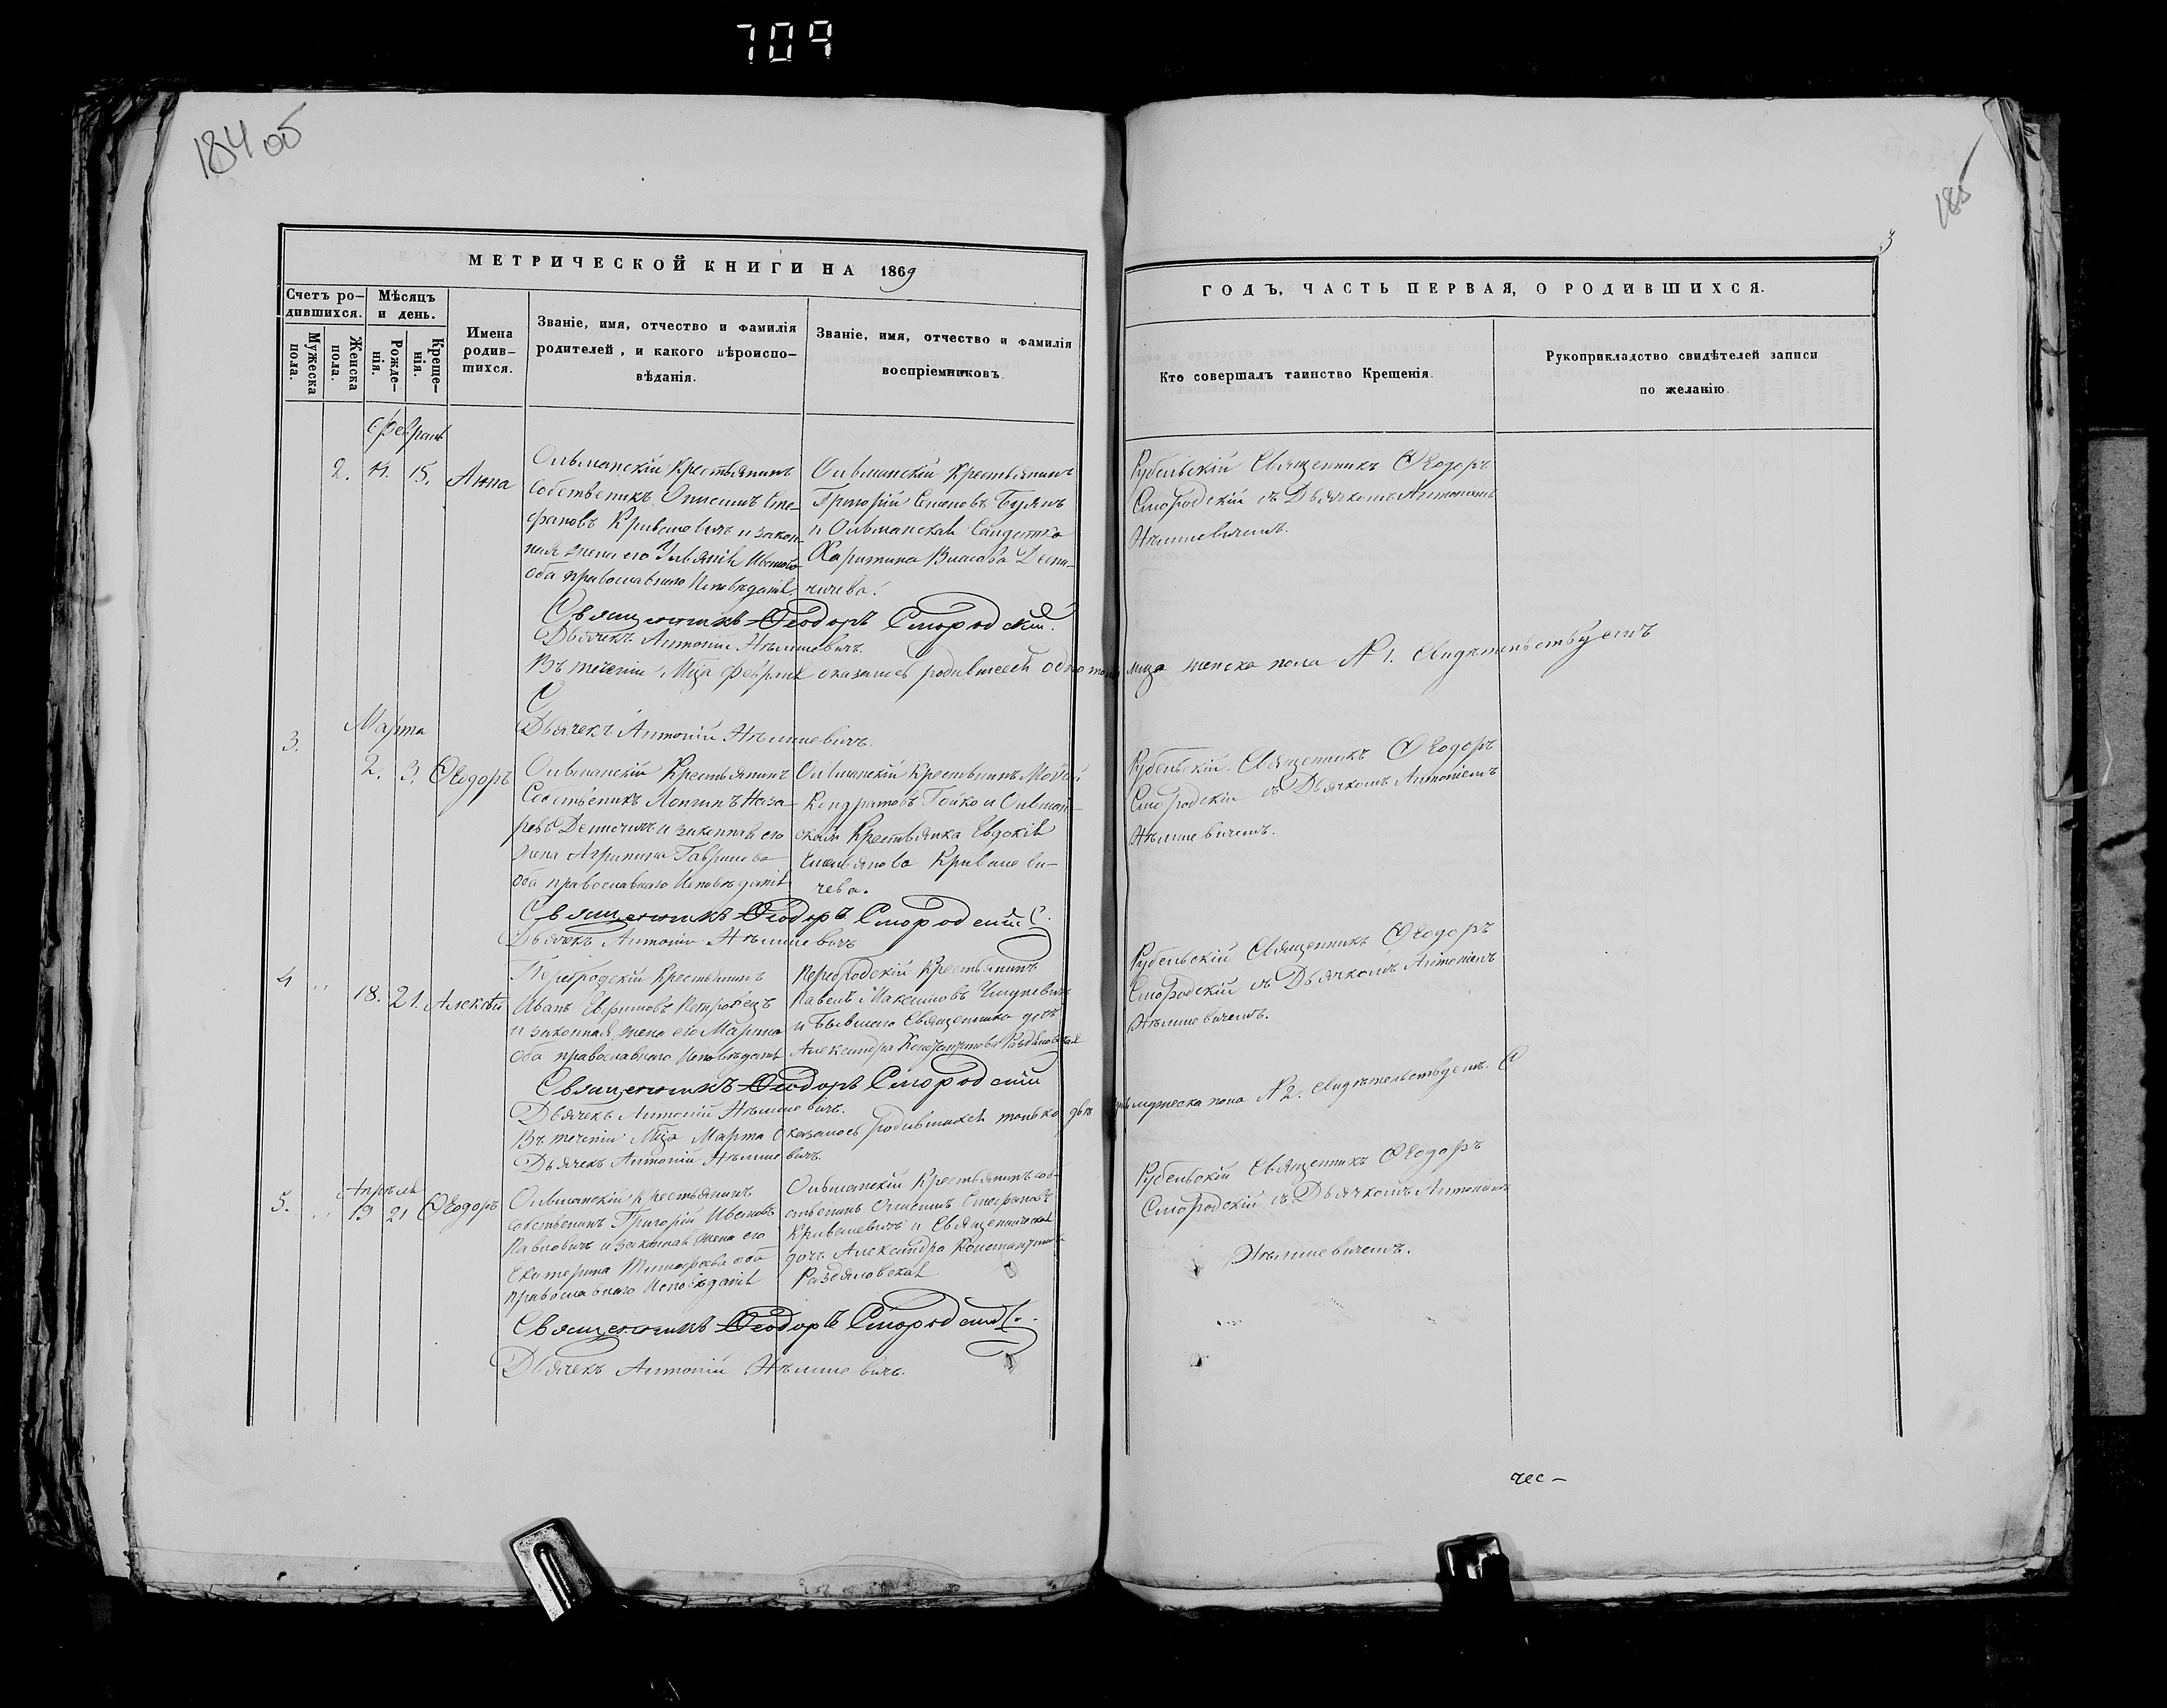 709
184 об
185
3
МЕТРИЧЕСКОЙ КНИГИ НА 1869
Счетъ ро-
дившихся.
Мужеска
пола.
Женска
пола.
Мѣсяцъ
и день.
Рожде-
нія.
Креще-
нія.
Имена
родив-
шихся.
Званіе, имя, отчество и фамилія
родителей, и какого вѣроиспо-
вѣданія.
Званіе, имя, отчество и фамилія
воспріемниковъ.
ГОДЪ, ЧАСТЬ ПЕРВАЯ, О РОДИВШИХСЯ.
Кто совершалъ таинство Крещенія.
Рукоприкладство свидѣтелей записи
по желанію.
Февраль
2. 15. Анна
Ольманскій Крестьянинъ
Собственикъ Онисимъ Сте-
фановъ Крившевичъ и закон-
ная жена его
оба православнаго Исповѣданія
Ольманскій Крестьянинъ
Григорій Семеновъ Бузянъ
и Ольманская Солдатка
Харитина Власова Дени-
чичева.
Рубельскій Священникъ Ѳеодоръ
Смородскій съ Дьячкомъ Антоніемъ
Нѣмшевичемъ.
Священникъ Ѳеодоръ Смородскій.
Дьячекъ Антоній Нѣмшевичъ.
Въ теченіи Мца Февраля оказалось родившееся одно только лица женска пола № 1. Свидѣтельствуемъ
С
Дьячекъ Антоній Нѣмшевичъ.
Марта
3. 2. 3. Ѳеодоръ
Ольманскій Крестьянинъ
Собственикъ Лонгинъ Наза-
ревъ Деничичъ и законная его
жена Агрипина Гаврилова
оба православнаго Исповѣданія
Ольманскій Крестьянинъ Мойсей
Кондратовъ Гойко и Ольман-
ская Крестьянка Евдокія
Емельянова Крившеви-
чева.
Рубельскій Священникъ Ѳеодоръ
Смородскій съ Дьячкомъ Антоніемъ
Нѣмшевичемъ.
Священникъ Ѳеодоръ Смородскій
Дьячекъ Антоній Нѣмшевичъ
4 " 18. 21. Алексѣй
Перебродскій Крестьянинъ
Иванъ Ефимовъ
и законная жена его Марта
оба православнаго Исповѣданія
Перебродскій Крестьянинъ
Павелъ Максимовъ
и бывшаго Священника дочь
Александра Константинова Раздяловская
Рубельскій Священникъ Ѳеодоръ
Смородскій съ Дьячкомъ Антоніемъ
Нѣмшевичемъ.
Священникъ Ѳеодоръ Смородскій
Дьячекъ Антоній Нѣмшевичъ.
Въ теченіи Мца Марта оказалось родившихся только двѣ мужеска пола № 2. Свидѣтельствуемъ. С
Дьячекъ Антоній Нѣмшевичъ.
Апрѣля
5. " 19 21 Ѳеодоръ
Ольманскій Крестьянинъ
Собственикъ Григорій Ивановъ
Павловичъ и законная жена его
Екатерина Тимофеева оба
православнаго Исповѣданія
Ольманскій Крестьянинъ соб-
ственикъ Онисимъ Стефановъ
Крившевичъ и Священническая
дочь Александра Константинова
Раздяловская
Рубельскій Священникъ Ѳеодоръ
Смородскій съ Дьячкомъ Антоніемъ
Нѣмшевичемъ.
Священникъ Ѳеодоръ Смородскій.
Дьячекъ Антоній Нѣмшевичъ.
чес-